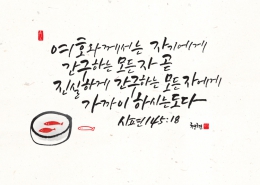 여호와께서는 자기에게
간구하는 모든 자 곧
진실하게 간구하는 모든 자에게
가까이 하시는도다
시편 145:18